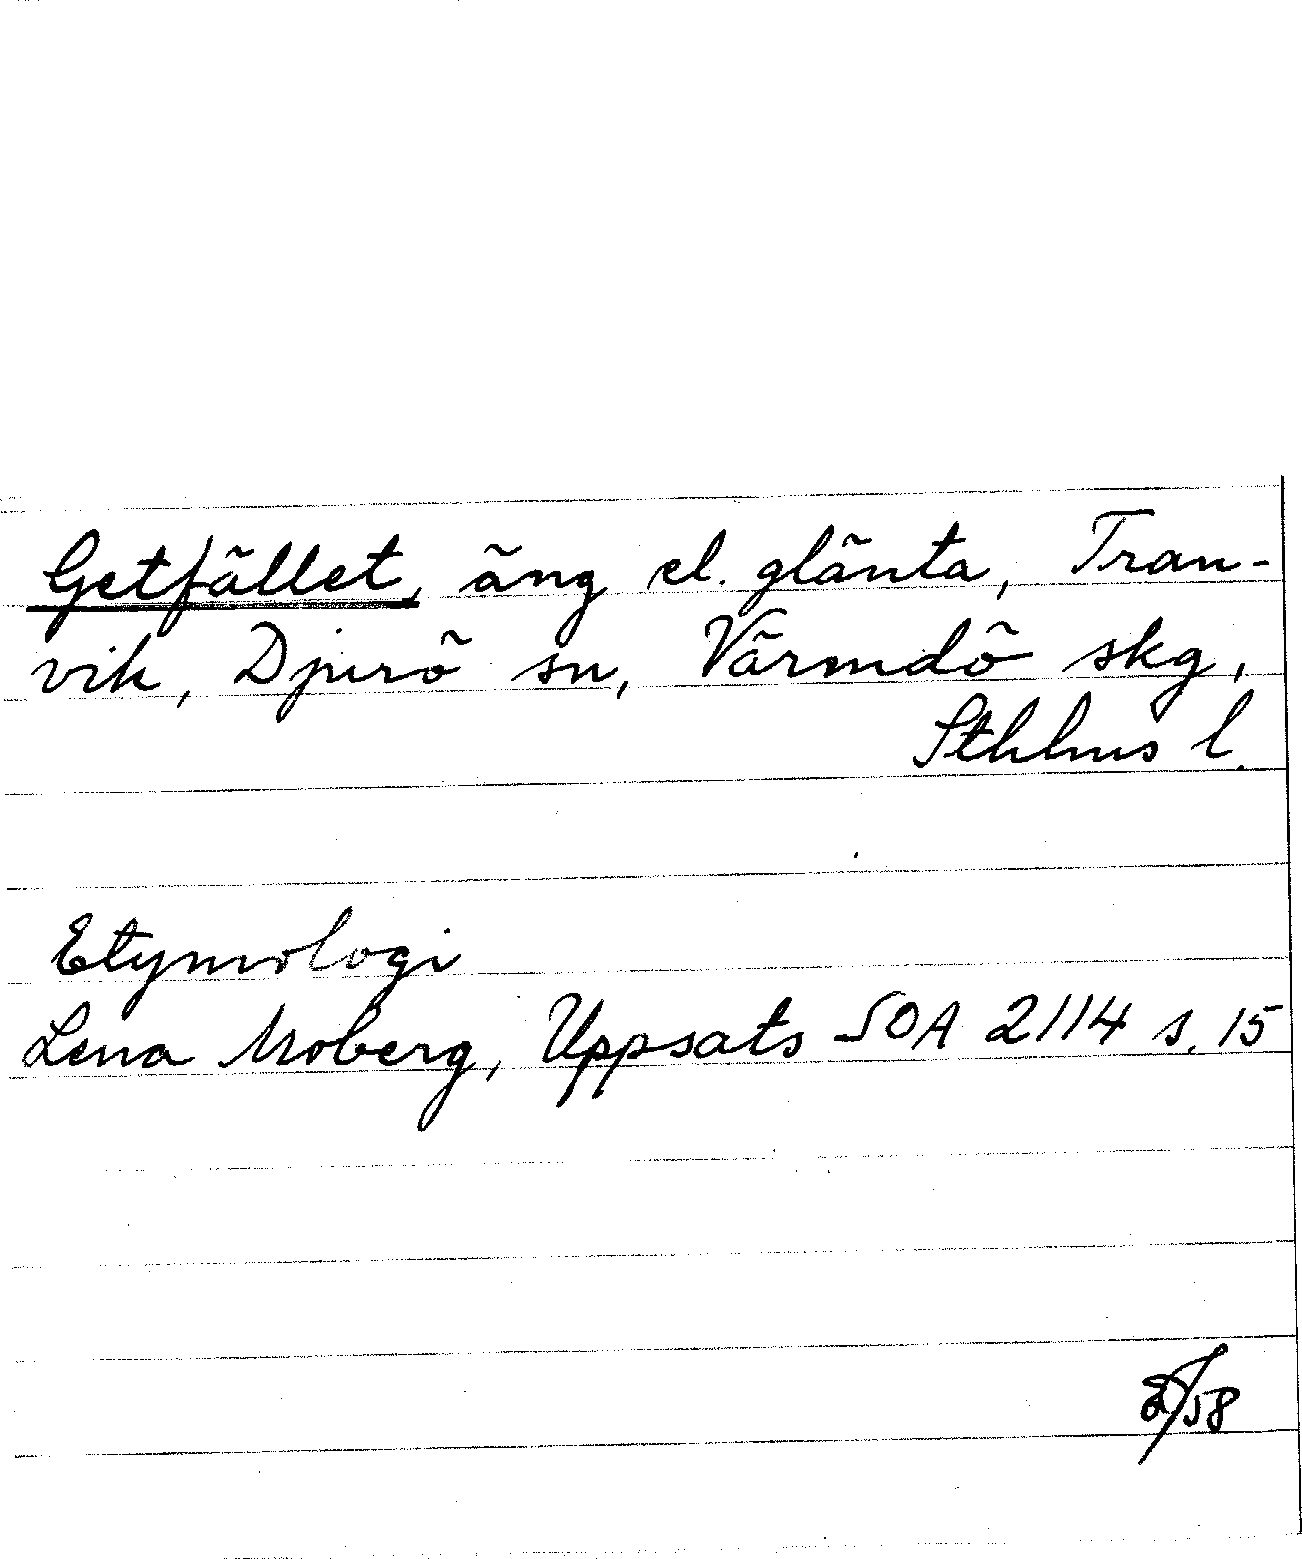 Getfället, äng el. glänta, Tran-
vik, Djurö sn, Värmdö skg,
Sthlms l.
Etymologi
Lena Moberg, Uppsats SOA 2114 s. 15